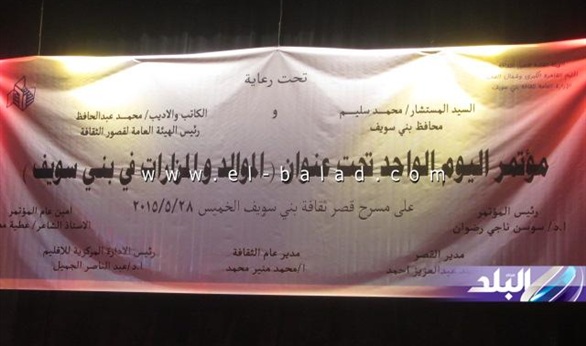 تحت رعاية
السيد المستشار/ محمد سليم
و
الكاتب والاديب/ محمد عبدالحافظ
محافظ بني سويف
رئيس الهيئة العامة لقصور الثقافة
مؤتمر اليوم الواحد تحت عنوان ( الموالد والمزارات في بني سويف )
www.el-balad.com
على مسرح قصر ثقافة بني سويف الخميس ٢٠١٥/٥/٢٨
رئيس المؤتمر
امين عام المؤتمر
ا.د/ سوسن ناجي رضوان
الاستاذ الشاعر/ عطية
مدير القصر
مدير عام الثقافة
رئيس الادارة المركزية للاقليم
عبدالعزيز احمد
ا/محمد منير محمد
ا.د/عبد الناصر الجميل
البلد